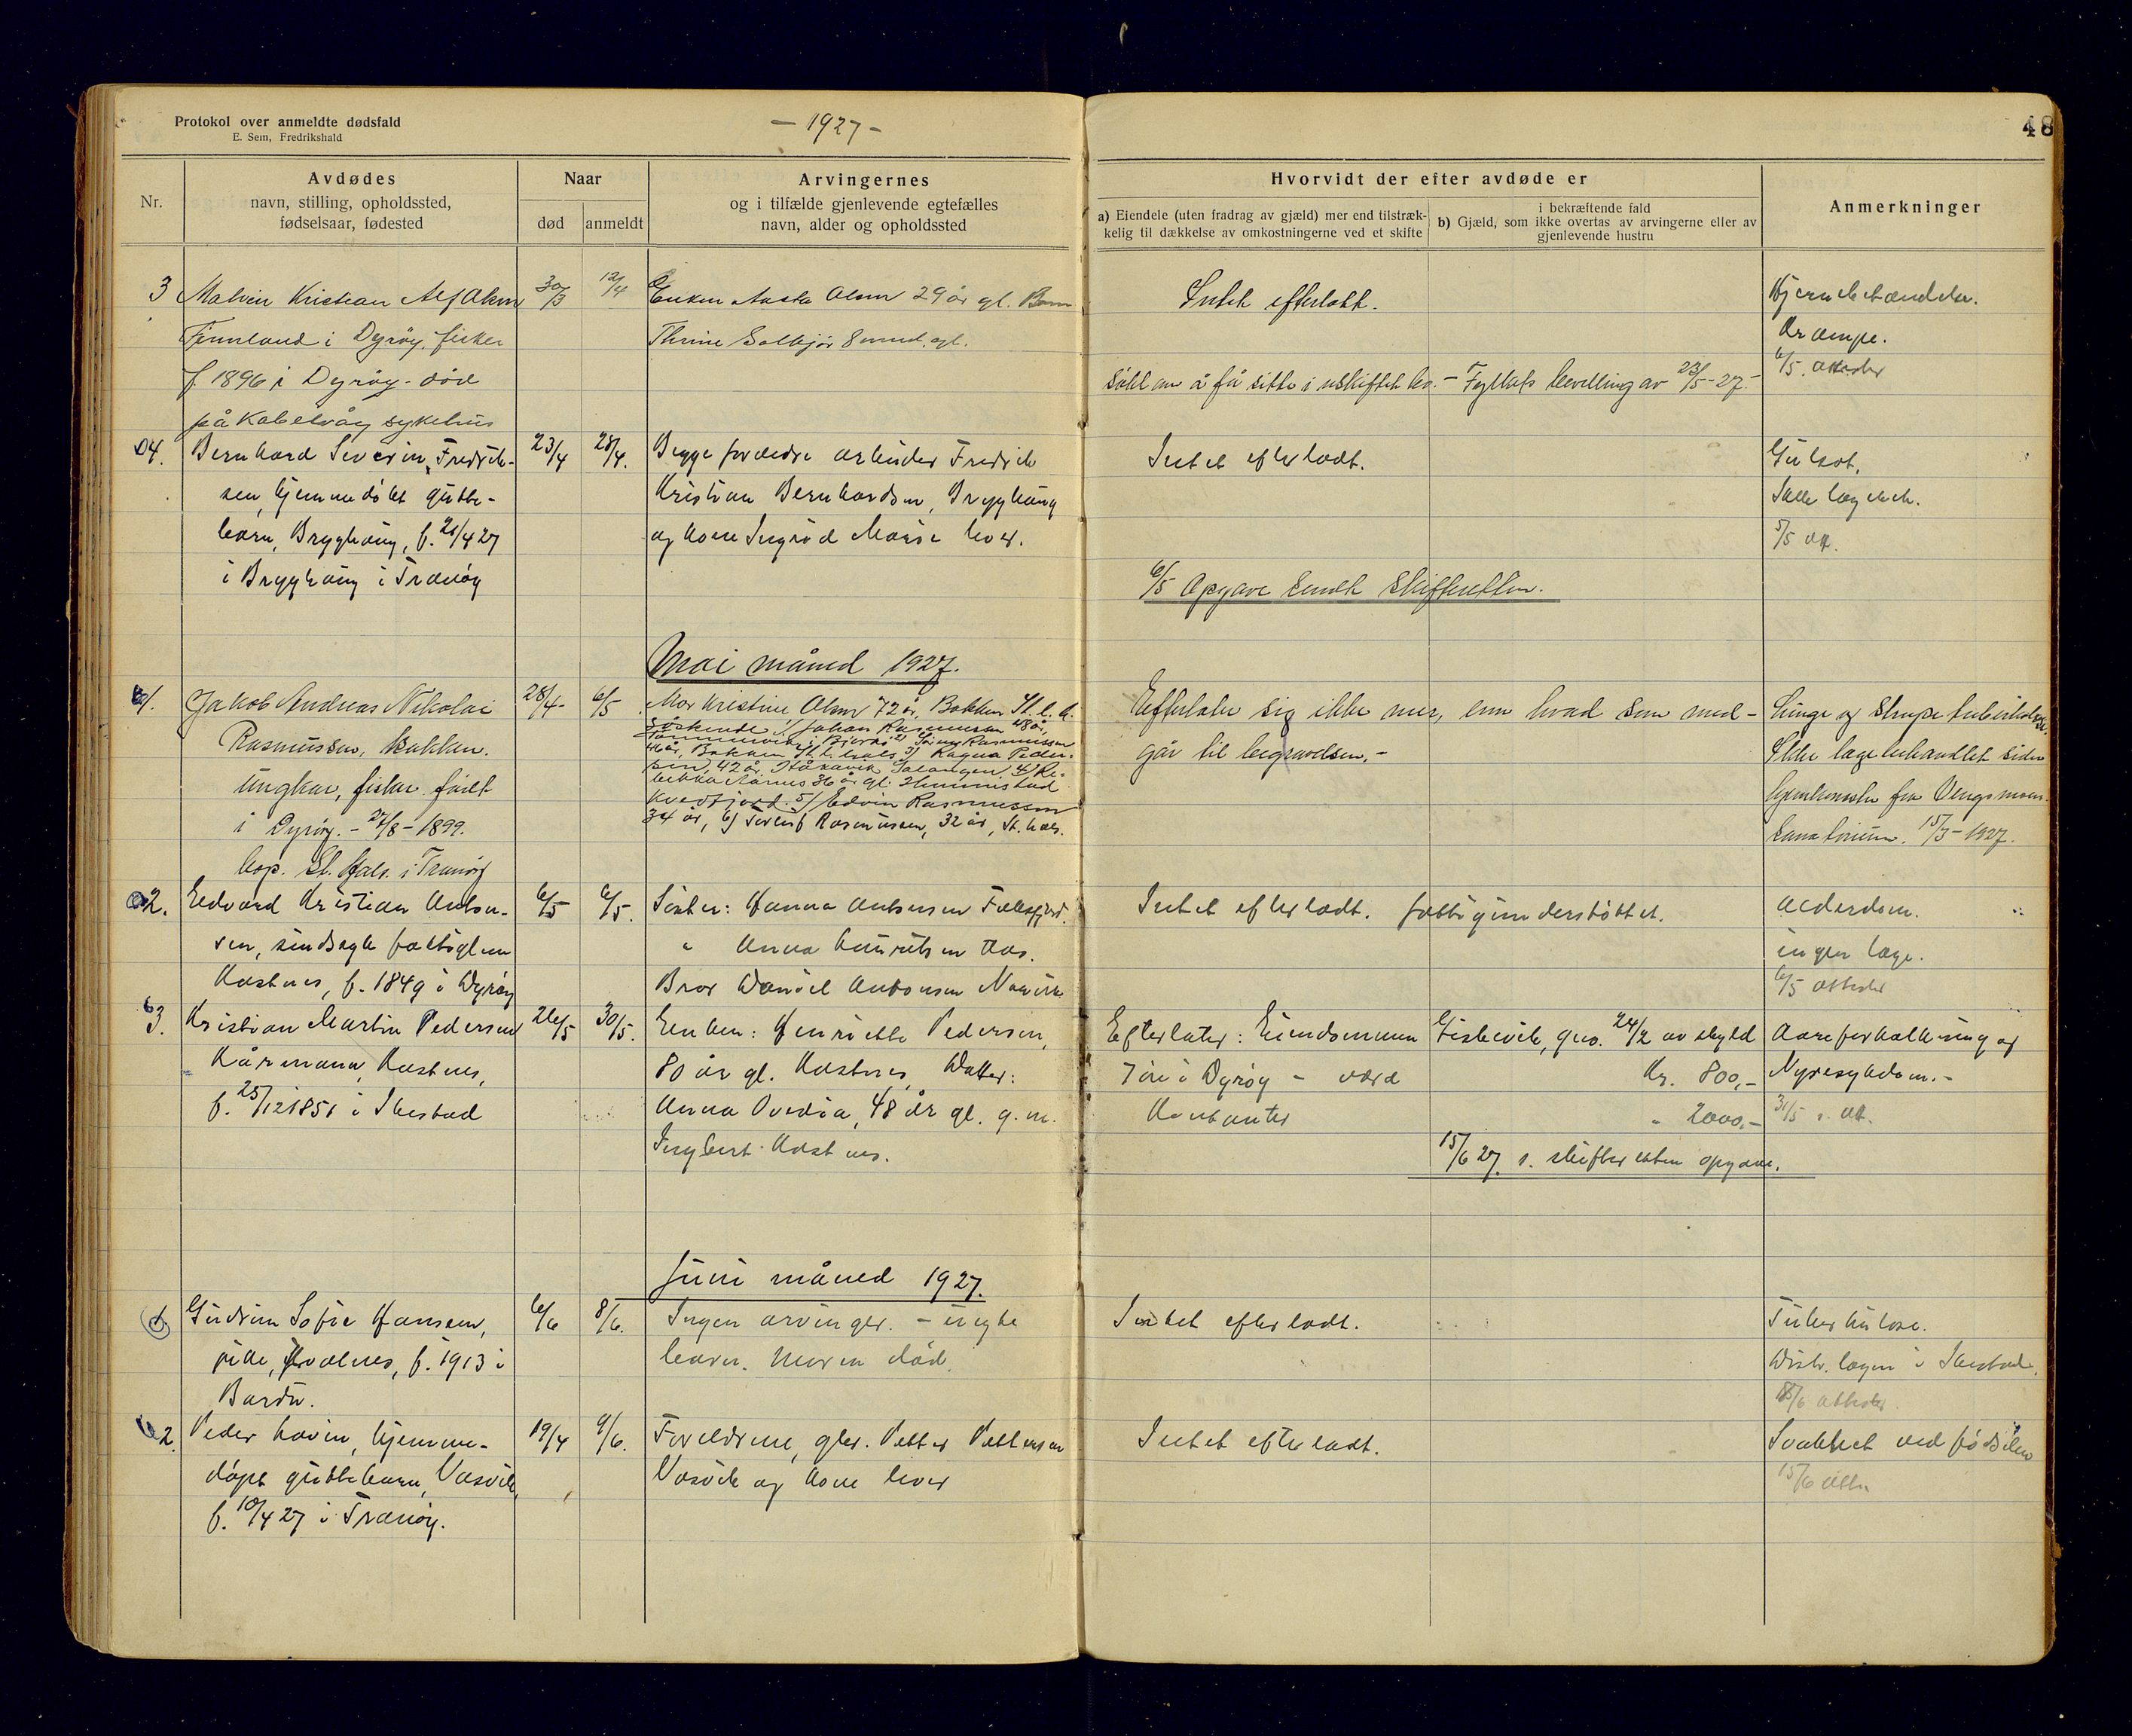 Protokol over anmeldte dødsfald
E. Sem, Fredrikshald
- 1927 -
48
Nr.
Avdødes
navn, stilling, opholdssted,
fødselsaar, fødested
Naar
død
anmeldt
Arvingernes
og i tilfælde gjenlevende egtefælles
navn, alder og opholdssted
Hvorvidt der efter avdøde er
a) Eiendele (uten fradrag av gjæld) mer end tilstræk-
kelig til dækkelse av omkostningerne ved et skifte
i bekræftende fald
b) Gjæld, som ikke overtas av arvingerne eller av
gjenlevende hustru
Anmerkninger
3 Malvin Kristian Alf Olsen
Finnland i Dyrøy, fisker
f 1896 i Dyrøy - död
på Kabelvåg sykehus
30/3
12/4
Enken Aasta Olsen 29 år gl. Barn
Thrine Solbjør 8 mnd. gl.
Intet efterlatt.
Søkt om å få sitte i uskiftet bo. - Fylkets bevilling av 23/5-27.-
Hjernebetændelse.
Krampe.
6/5. attester
04. Bernhard Severin Fredrik-
sen, hjemmedöbt gutte-
barn, Brygghaug, f. 21/4 27
i Brygghaug i Tranöy
23/4
28/4.
Begge foreldre arbeider Fredrik
Kristian Bernhardsen, Brygghaug
og kone Ingrid Marie lever.
Intet efterladt.
Gulsot.
Ikke lægesøk.
5/5 att.
6/5 Opgave sendt skifteretten.
Mai måned 1927.
1. Jakob Andreas Nikolai
Rasmussen, Bakken.
Ungkar, fisker født
i Dyröy. - 27/8 - 1899.
bop. St. Hals. i Tranöy
28/4-
6/5
Mor Kristine Olsen 72 år, Bakken St. h.
Söskende 1/ Johan Rasmussen 48 år,
46 år, Bakken St. hals 3/ Ragna Peder-
sen, 42 år, Salangen, 4/ Re-
bekka Aanes 36 år gl.
Kvedfjord. 5/ Edvin Rasmussen
34 år, 6/ Torleif Rasmussen, 32 år, St. hals.
Efterlater sig ikke mer, enn hvad som med-
går til begravelsen. -
Lunge og strupe tuberkulose.
Ikke lægebehandlet siden
hjemkomsten fra Vensmoen
sanatorium. 15/3 - 1927.
2. Edvard Kristian Anton-
sen, sindssyk fattiglem
Kastnes, f. 1849 i Dyröy
6/5
6/5.
Söster: Hanna Antonsen Faksfjord.
" Anna Lauritsen Aas.
Bror Daniel Antonsen
Intet efterladt. fattigunderstöttet.
Alderdom.
ingen læge.
6/5 attester
3. Kristian Martin Pedersen
Kårmann, Kastnes,
f. 25/12 1851 i Ibestad
26/5
30/5.
Enken: Henriette Pedersen,
80 år gl. Kastnes, Datter:
Anna Ovedia, 48 år gl. g. m.
Ingbert Kastnes.
Efterlater: Eiendommen Fiskevik, gno. 24/2 av skyld
7 øre i Dyröy - værd Kr. 800,-
Kontanter " 2000,-
15/6 27. s. skifteretten opgave.
Aareforkalkning og
Nyresykdom.-
31/5 s. att.
Juni måned 1927.
1. Gudrun Sofie Hansen,
pike, Kvalnes, f. 1913 i
Bardu.
6/6
8/6.
Ingen arvinger. - uegte
barn. Moren död.
Intet efterladt.
Tuberkulose.
Distr. lægen i Ibestad.
8/6 attester.
2. Peder Lavin, hjemme-
döpt guttebarn, Vasvik,
f. 10/4 27 i Tranöy.
19/4
9/6.
Foreldrene, gbr. Petter Pettersen
Vasvik og kone lever
Intet efterladt.
Svakhet ved födselen
15/6 att.